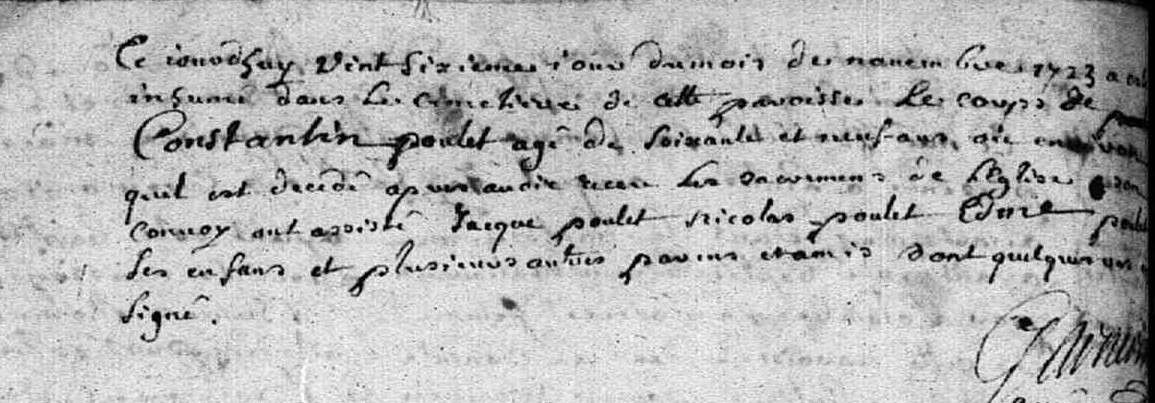 Ce iourdhuy vint sixieme iour du mois de novembre 1723 a
inhumé dans le cimetiere de cette paroisse le corps de
Constantin poulet agé de soixante et neuf ans
quil est decedé apres avoir receu les sacremens de l'Eglise a son
convoy ont assisté Jacque poulet nicolas poulet Edme poulet
ses enfans et plusieurs autres parens et amis dont quelques uns
signé.